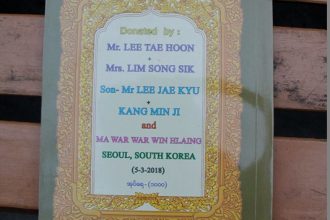 Donated by :
Mr. LEE TAE HOON
+
Mrs. LIM SONG SIK
Son- Mr LEE JAE KYU
+
KANG MIN JI
and
MA WAR WAR WIN HLAING
SEOUL, SOUTH KOREA
(5-3-2018)
အုပ်ရေ-(၁၀၀၀)